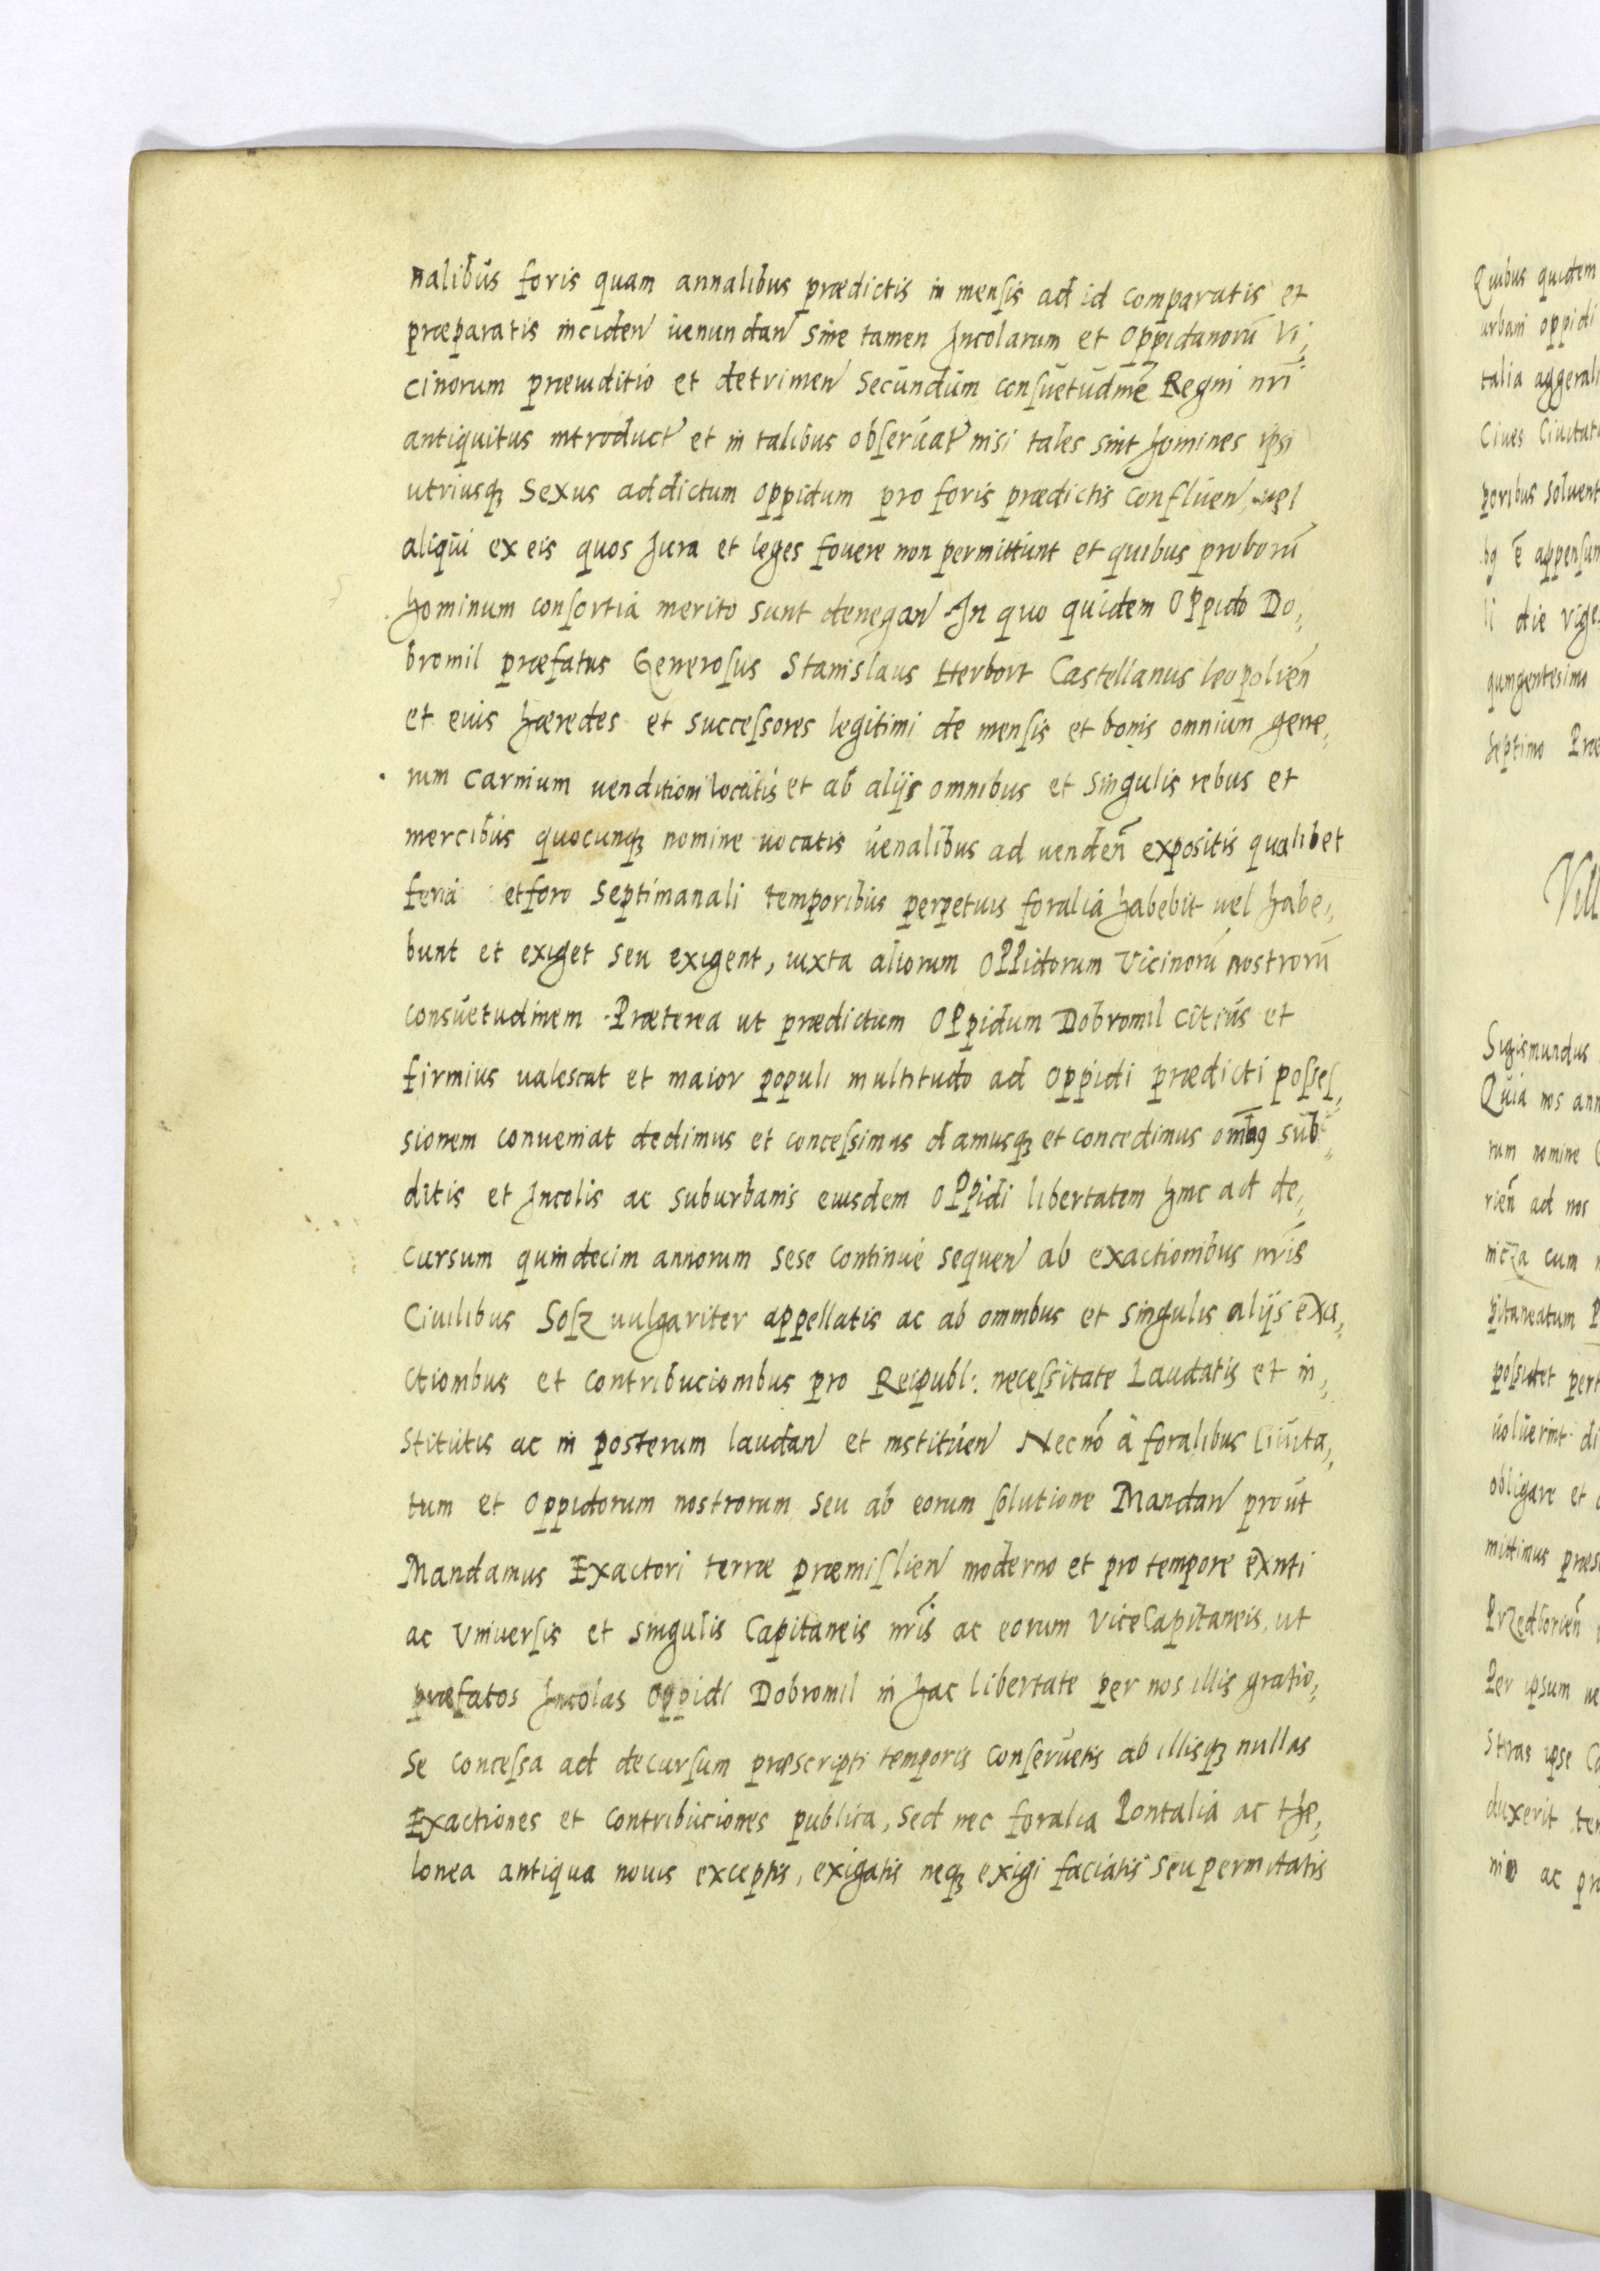 nalibus foris quam annalibus prædictis in mensis ad id comparatis et
præparatis inciden venundan sine tamen Incolarum et Oppidanorū Vi,
cinorum præiuditio et detrimen secundum consuetudinē Regni nrī
antiquitus introduct et in talibus observat nisi tales sint homines ipsi
utriusq3 Sexus ad dictum oppidum pro foris prædictis confluen, vel
aliqui ex eis quos Jura et leges fovere non permittunt et quibus proborū
hominum consortia merito sunt denegan In quo quidem Oppido Do,
bromil præfatus Generosus Stanislaus Herbort Castellanus leopolien
et eius hæredes et successores legitimi de mensis et bonis omnium gene,
rum carnium venditioni locatis et ab alijs omnibus et singulis rebus et
mercibus quocunq3 nomine vocatis venalibus ad venden expositis qualibet
feria et foro septimanali temporibus perpetuis foralia habebit vel habe,
bunt et exiget seu exigent, iuxta aliorum Oppidorum Vicinorū nostrorū
consuetudinem. Præterea ut prædictum Oppidum Dobromil citius et
firmius valescat et maior populi multitudo ad Oppidi prædicti posses,
sionem conveniat dedimus et concessimus damusq3 et concedimus omībg sub,
ditis et Incolis ac suburbanis eiusdem Oppidi libertatem hinc ad de,
cursum quindecim annorum sese continué sequen ab exactionibus nrīs
Civilibus Sosz vulgariter appellatis ac ab omnibus et singulis alijs exa,
ctionibus et contribucionibus pro Reipubl: necessitate Laudatis et in,
stitutis ac in posterum laudan et instituen Necnō â foralibus Civita,
tum et Oppidorum nostrorum seu ab eorum solutione Mandan prout
Mandamus Exactori terræ præmislien moderno et pro tempore exn̄ti
ac Universis et singulis Capitaneis nrīs ac eorum ViceCapitaneis, ut
præfatos Incolas Oppidi Dobromil in hac libertate per nos illis gratio,
se concessa ad decursum præscripti temporis conservetis ab illisq3 nullas
Exactiones et contribuciones publica, sed nec foralia Pontalia ac the,
lonea antiqua novis exceptis, exigatis neq3 exigi faciatis seu permitatis
Quibus quidem
urbani oppidi
talia aggerali
Cives Civitat
poribus solvent
bg ē appensum
li die vige
quingentesimo
septimo Præ
Vill
Sigismundus
Quia nos ann
rum nomine
rien ad nos
nicza cum
pitaneatum P
possidet pert
voluerint di
obligare et
mittimus præs
Przedborien
Per ipsum ne
stras ipse Ca
duxerit ter
nio ac pr